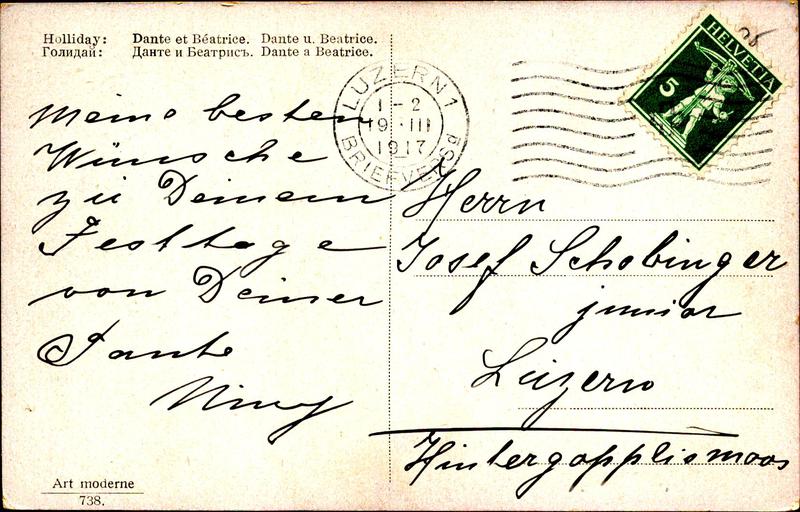 Holliday: Dante et Béatrice. Dante u. Beatrice.
Голидай: Данте и Беатрисъ. Dante a Beatrice.
HELVETIA
5
LUZERN 1
1-2
19.III
1917
BRIEFVERSD
Meine besten
Wünsche
zu Deinem
Festtage
von Deiner
Tante
Herrn
Josef Schobinger
junior
Luzern
Hintergopplismoos
Art moderne
738.